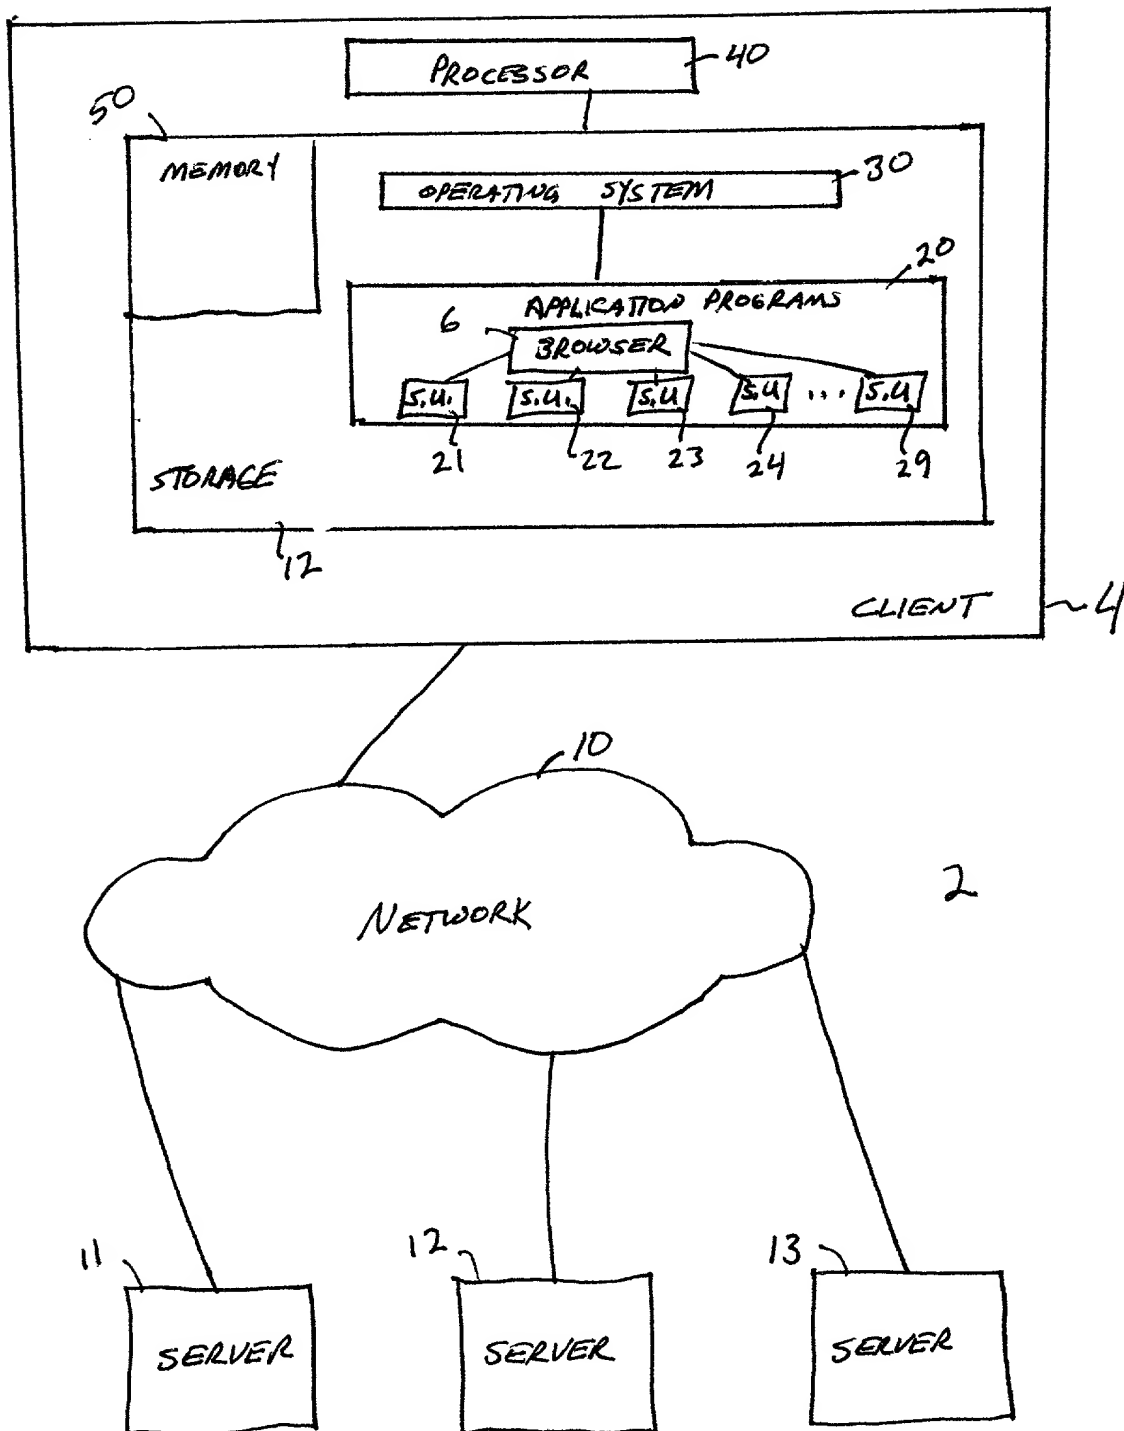 PROCESSOR
40
50
MEMORY
OPERATING SYSTEM
30
20
APPLICATION PROGRAMS
6
BROWSER
S.U.
S.U.
S.U
S.U
...
S.U.
21
22
23
24
29
STORAGE
12
CLIENT
4
10
NETWORK
2
11
12
13
SERVER
SERVER
SERVER